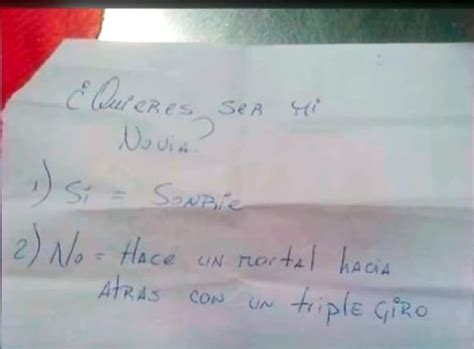 ¿Quieres ser mi
Novia?
1) Si = Sonrie
2) No = Hace un mortal hacia
atras con un triple giro